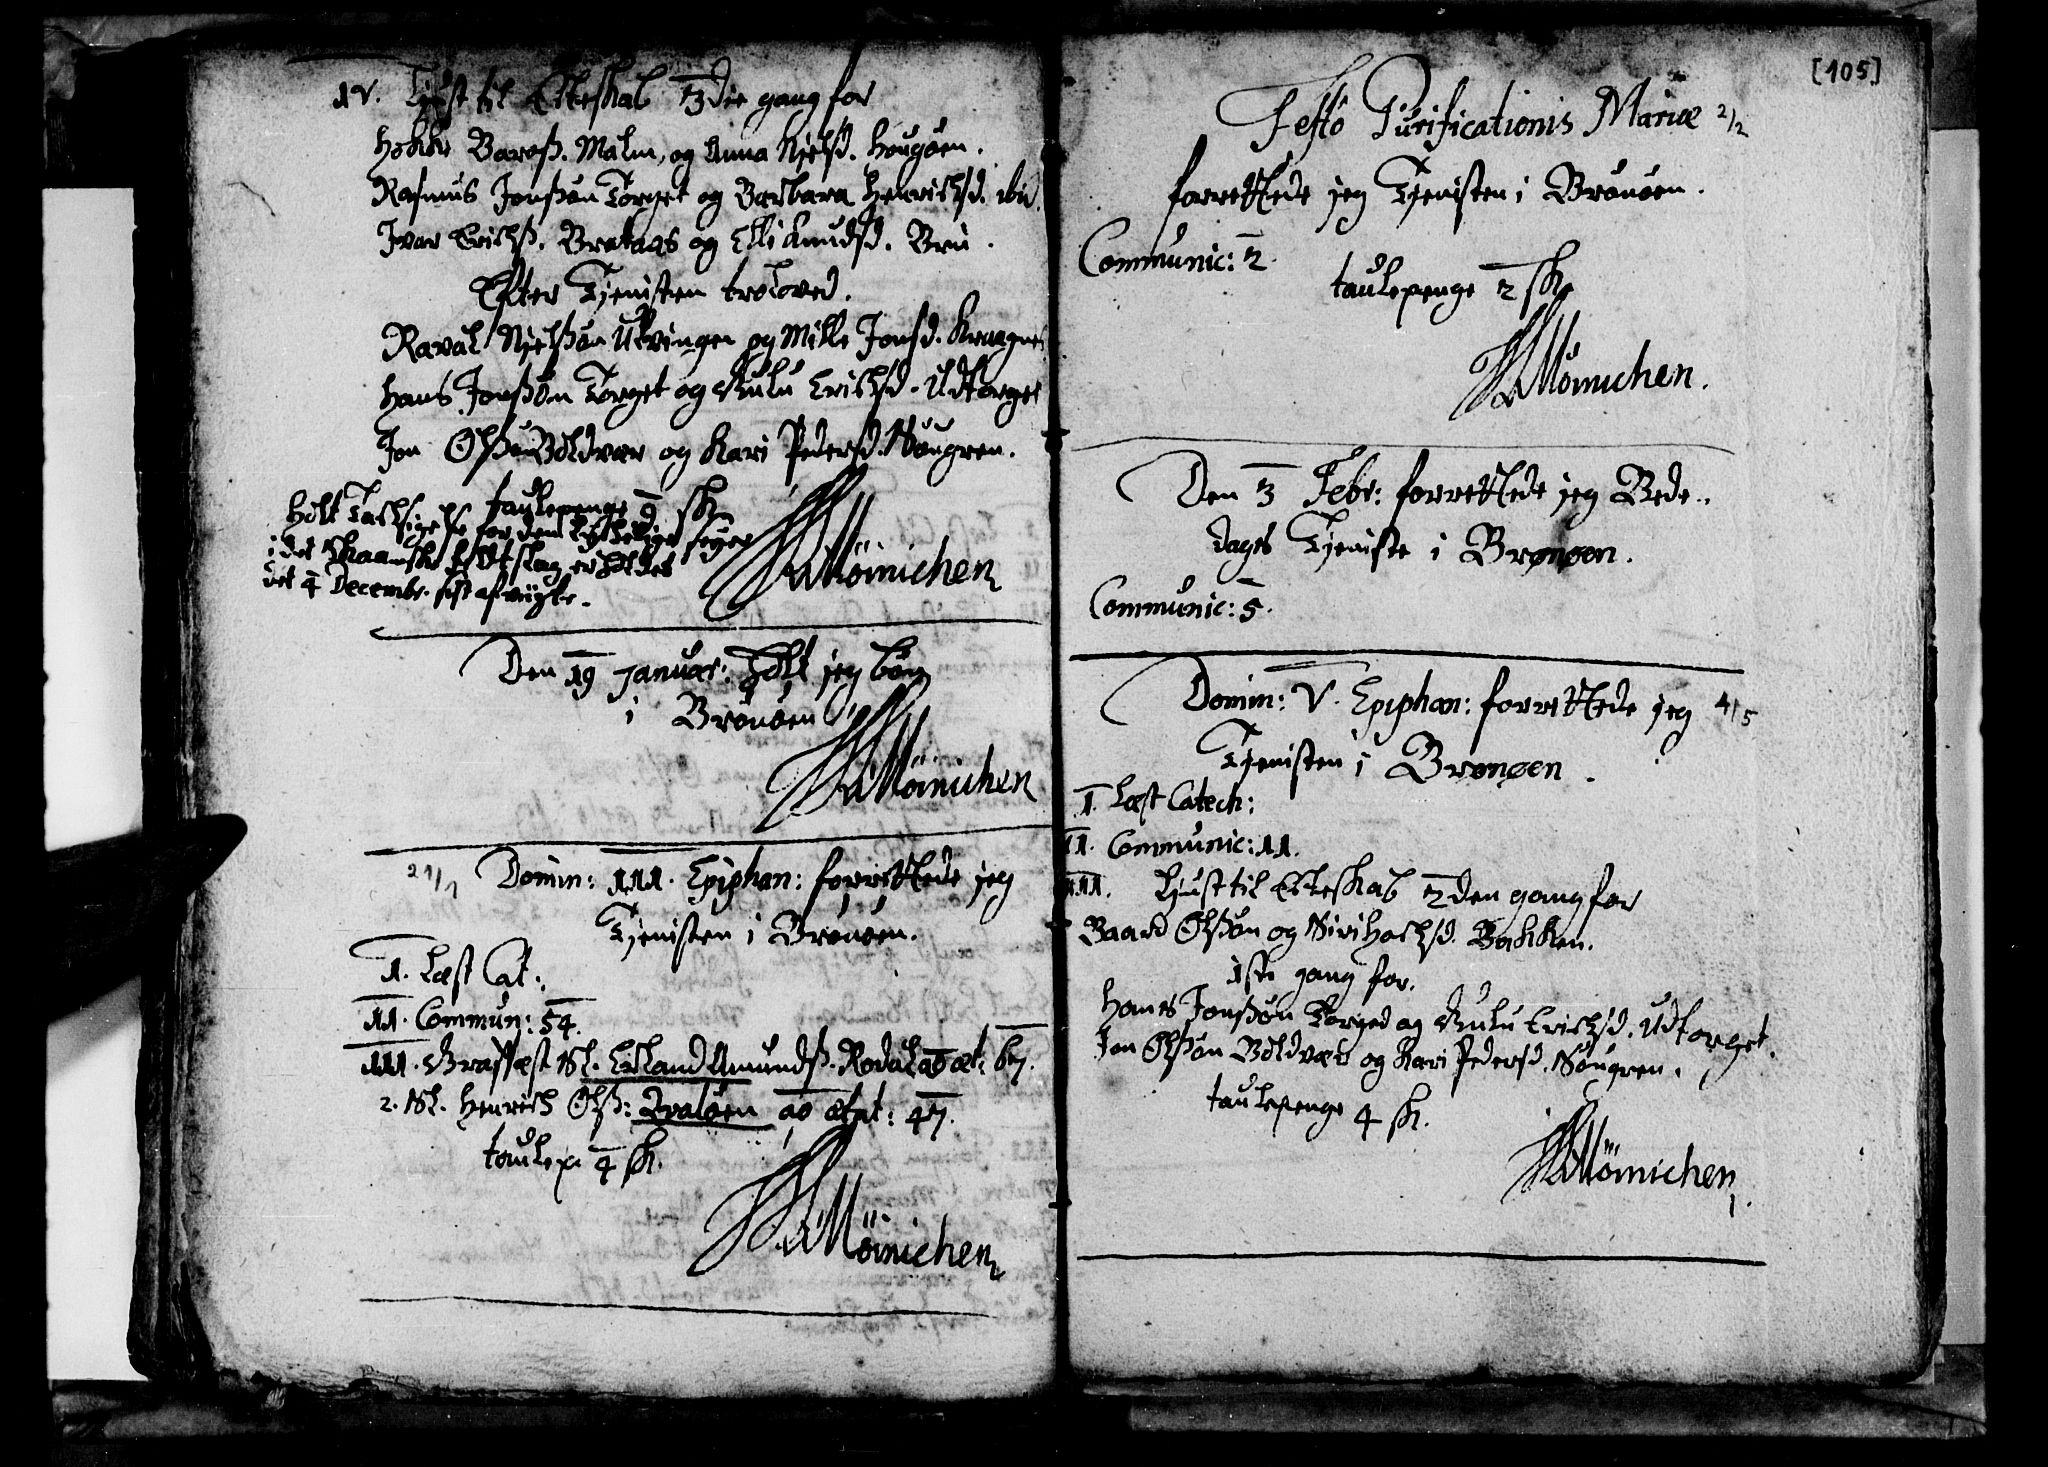 1V. Ljust til Ecteskab 3die gang for
Hokko Baroß. Malm, og Anna Njelsd. Hougøen.
Rasmus Jonßøn Torget og Barbara Henrichsd. ibid.
Jvar Erichß. Brataas og Elli Amudsd. Bru.
Efter Tjenisten troloved.
Raval Njelßøn Utvingen og Mille Jonsd. Kraagnes
Hans Jonßøn Torget og Gulu Erichsd. Udtorget
Jon Olßøn Boldvær og Kari Pedersd. Nougren.
taulepenge 9 sk
Holt Tachsigelse for dem Lychelige Seyer
i det Skaanske feltslag er holdet
det 4 Decembr. sist afvigte.
HMönichen
Den 19 Januar: Holt jeg bøn
i Brønøen
HMönichen
21/1 Domin: 111. Epiphan: forrettede jeg
Tjenisten i Brønøen.
1. Læst Cat:
11. Commun: 54.
111. Graffæst Sl. Erland Amundß. Rodal ao æt: 67.
2. Sl. Henrich Olß: Qvaløen ao ætat: 47.
taulep. 4 sk.
HMönichen
[105]
Festo Purificationis Mariæ 2/2
forrettede jeg Tjenisten i Brønøen.
Communic: 2.
taulepenge 2 sk
HMönichen.
Den 3 Febr: forrettede jeg Bede-
dages Tjeniste i Brønøen.
Communic: 5.
Domin: V. Epiphan: forrettede jeg 4/5
Tjenisten i Brønøen. ?
1. Læst Catech:
11. Communic: 11.
111. Ljust til Ecteskab 2den gang for
Baard Olßøn og Siri Hochsd. Bakken.
1ste gang for.
Hans Jonßøn Torged og Gulu Erichsd. Udtorget.
Jon Olßøn Boldvær og Kari Pedersd. Nougren.
taulepenge 4 sk.
HMönichen.